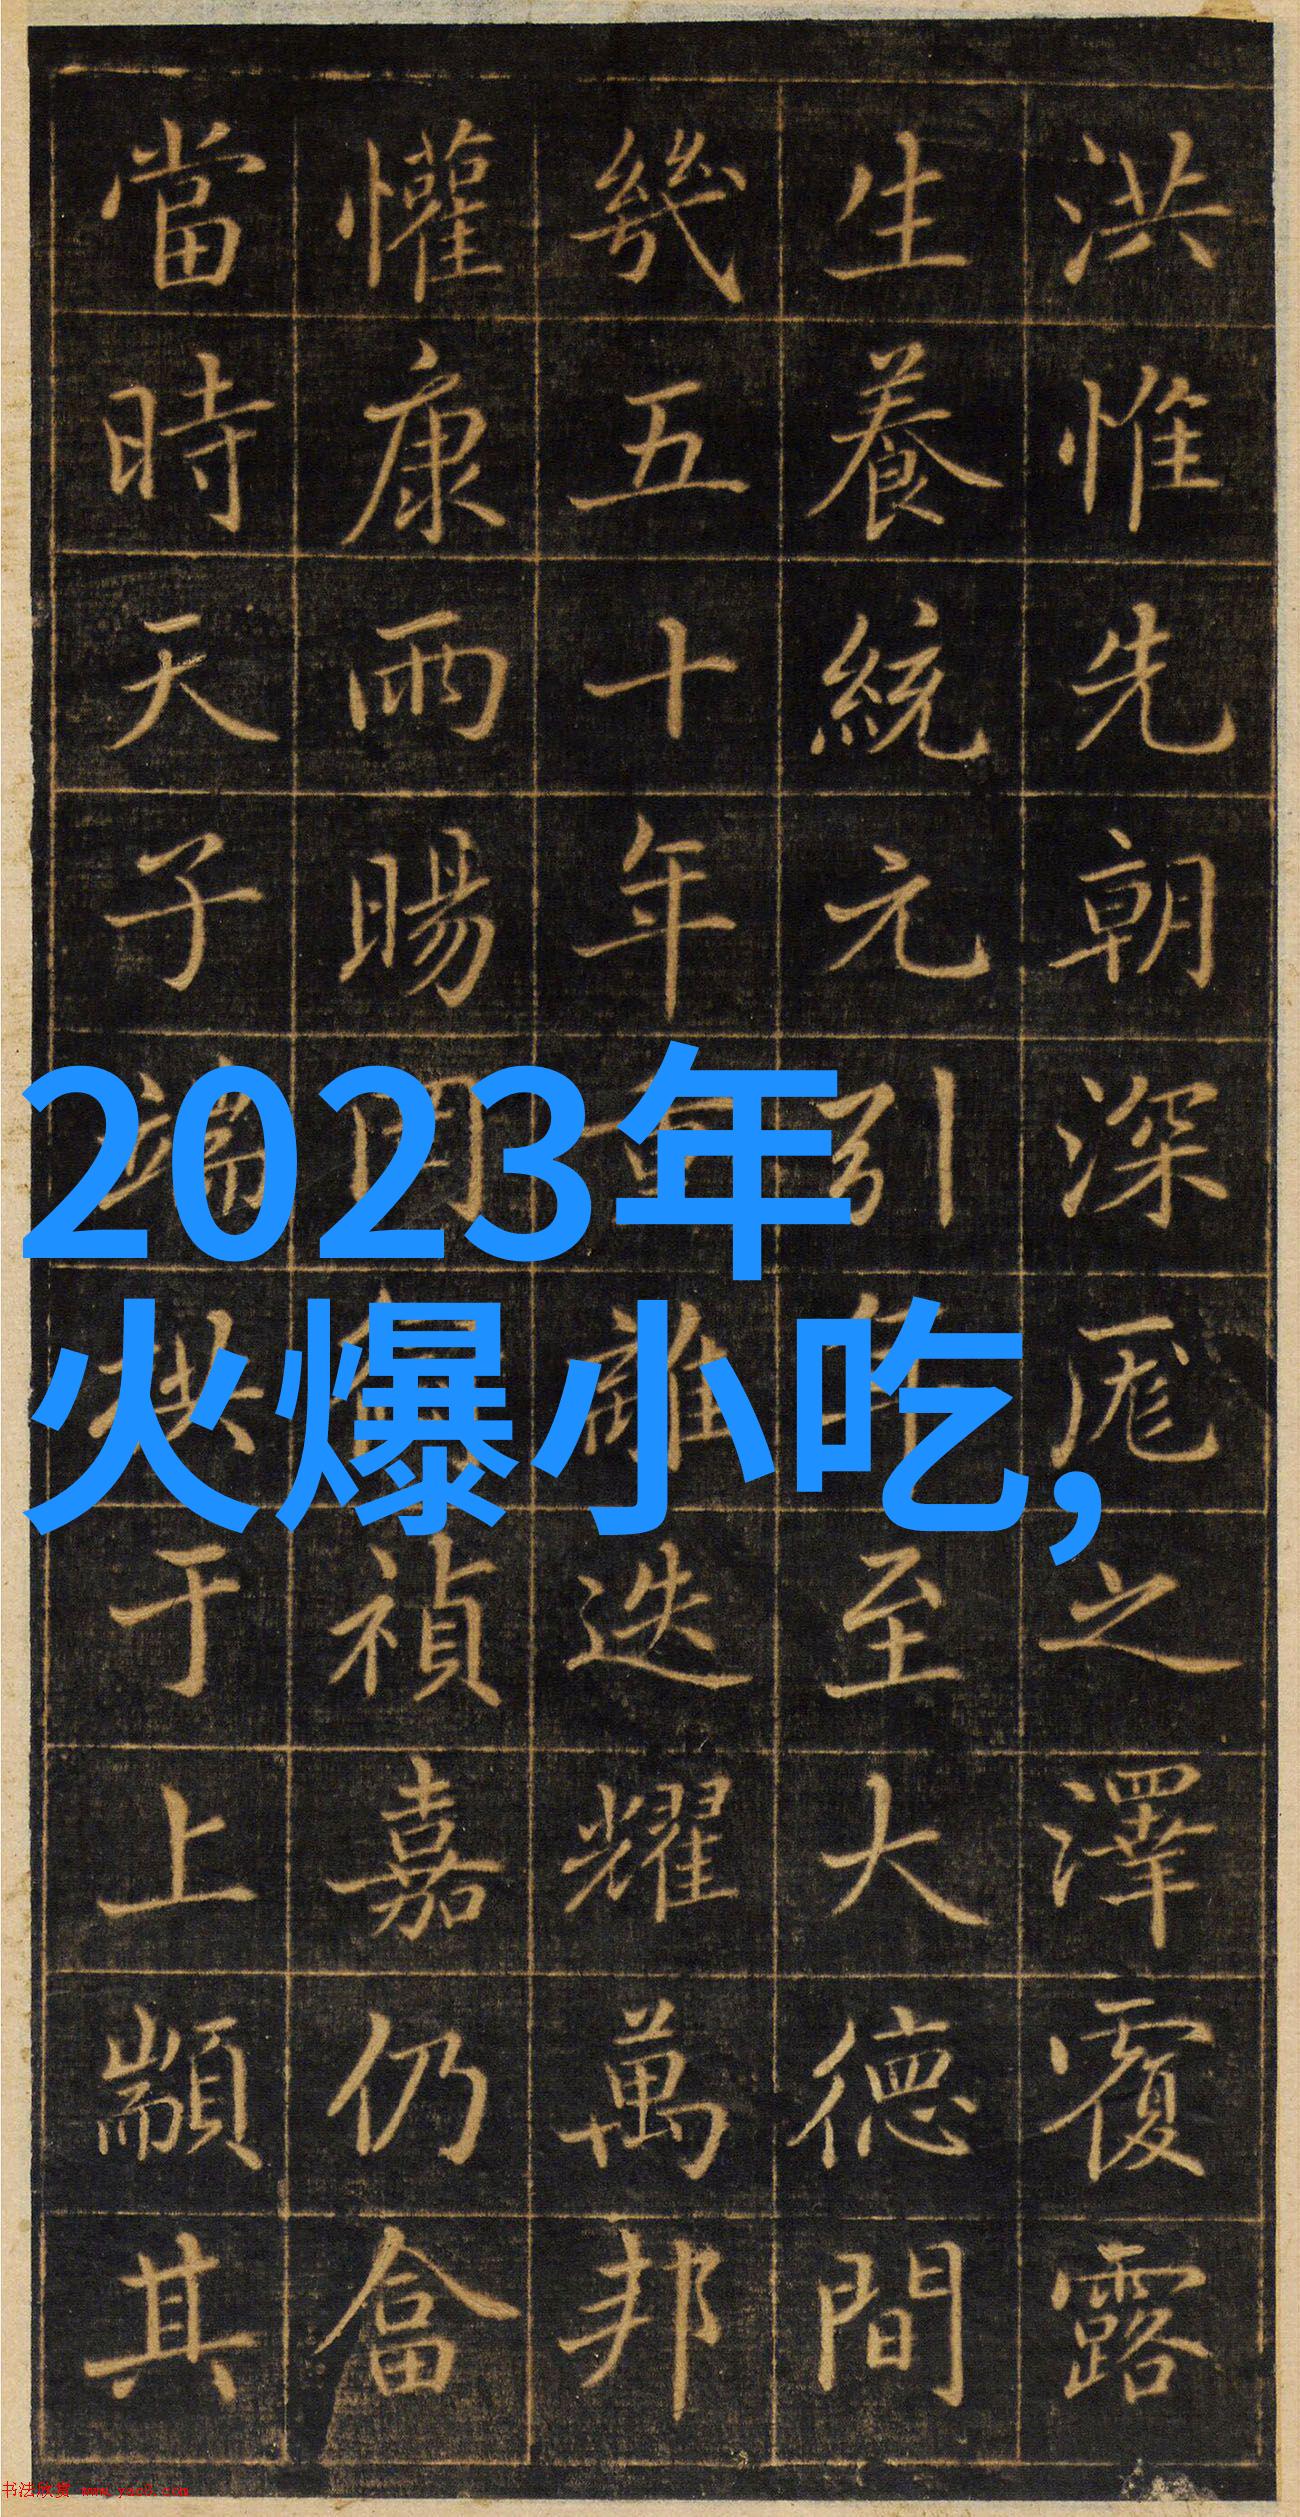 洪惟先朝深厖之澤覆露
生養統元引年至大德間
幾五十年重離迭耀萬邦
懽康雨暘禎嘉仍畣
當時天子端拱于上顓其
2023年
火爆小吃,
书法欣赏 www.yac8.com